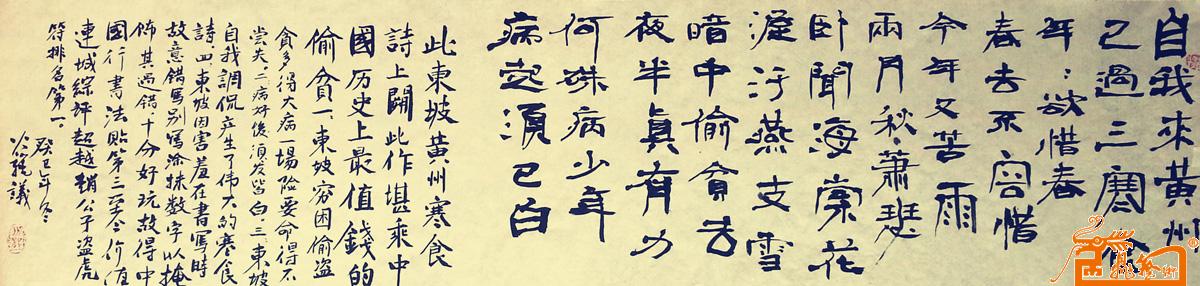 自我来黄州
已過三寒
年：欲惜春
春去不容惜
今年又苦雨
兩月秋蕭瑟
卧聞海棠花
泥汙燕支雪
暗中偷貪去
夜半真有力
何殊病少年
病起須已白
此東坡黄州寒食
詩上闕此作堪乘中
國历史上最值錢的
偷貪一、東坡窮困偷盗
貪多得大病一場險要命得不
尝失、二病好後須发皆白三東坡
自我調侃产生了伟大的寒食
詩、四東坡因害羞在書写時
故意错写别写涂抹数字以掩
饰其過错十分好玩故得中
國行書法贴第三至今价值
連城綜評超越公子盗虎
符排名第一。
癸巳年冬
議